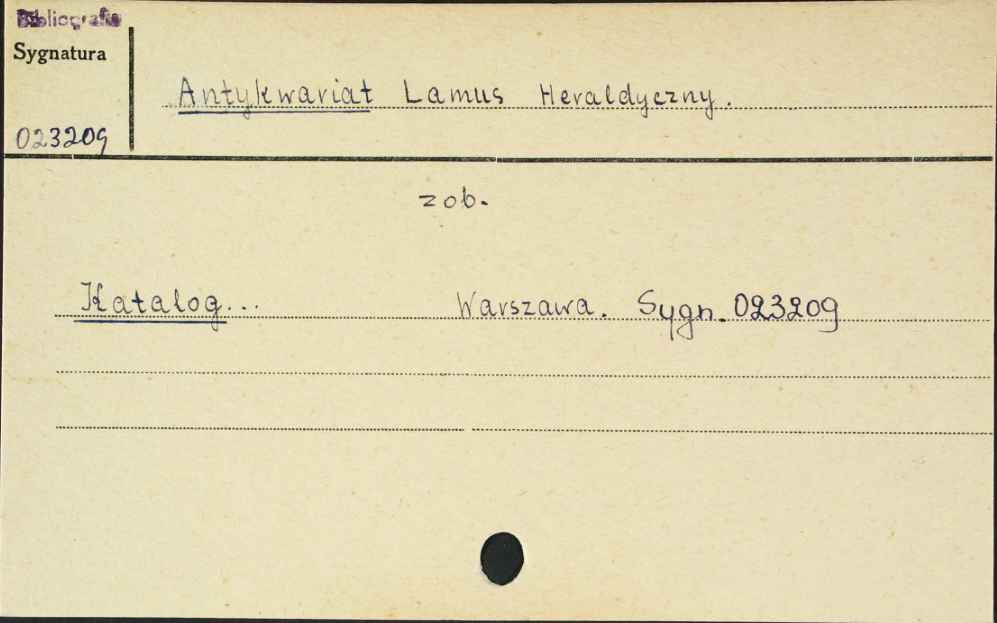 Bibliografia
Sygnatura
Antykwariat Lamus Heraldyczny.
023209
zob.
Katalog... Warszawa. Sygn. 023209